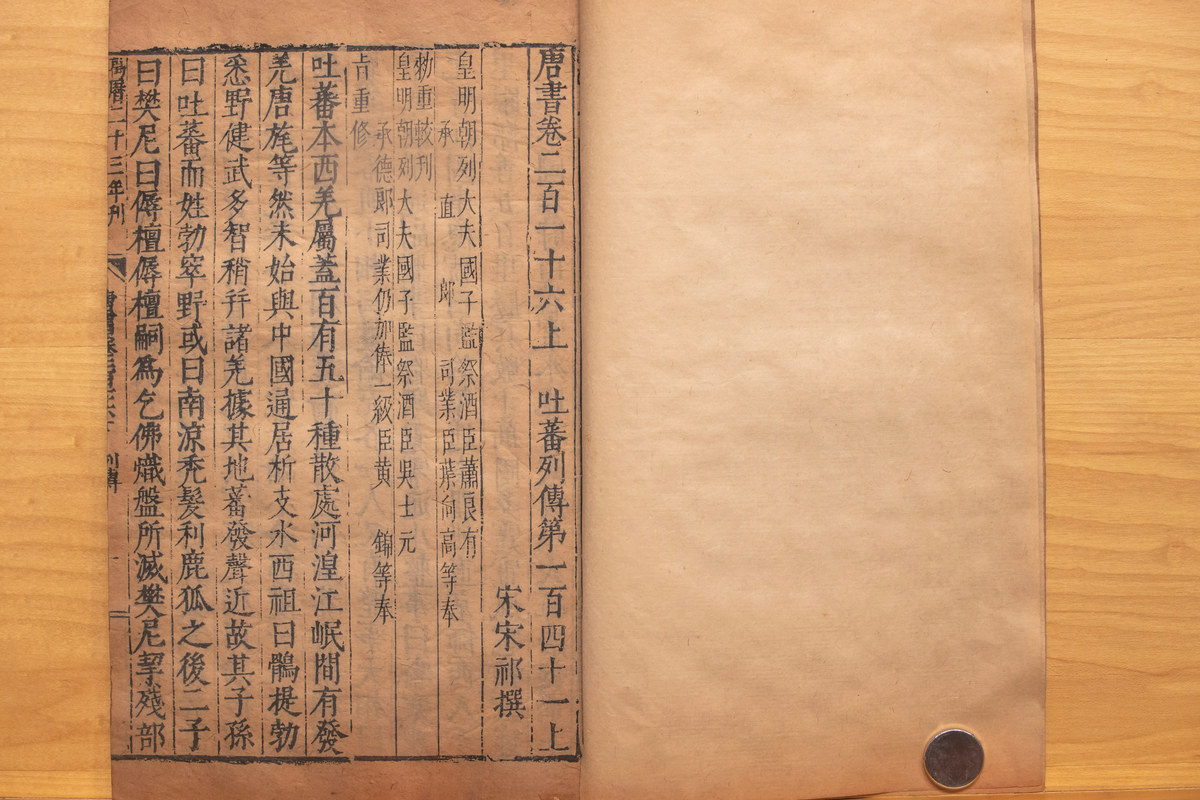 唐書卷二百一十六上　吐蕃列傳第一百四十一上
宋宋祁撰
皇明朝列大夫國子監祭酒臣蕭良有
承直郎司業臣葉向高等奉
勑重較刊
皇明朝列大夫國子監祭酒臣吳士元
承德郎司業仍加俸一級臣黃　錦等奉
旨重修
吐蕃本西羌屬蓋百有五十種散處河湟江岷間有發
羌唐旄等然未始與中國通居析支水西祖曰鶻提勃
悉野健武多智稍并諸羌據其地蕃發聲近故其子孫
曰吐蕃而姓勃窣野或曰南涼禿髮利鹿狐之後二子
曰樊尼曰傉檀傉檀嗣為乞佛熾盤所滅樊尼挈殘部
曆二十三年刊